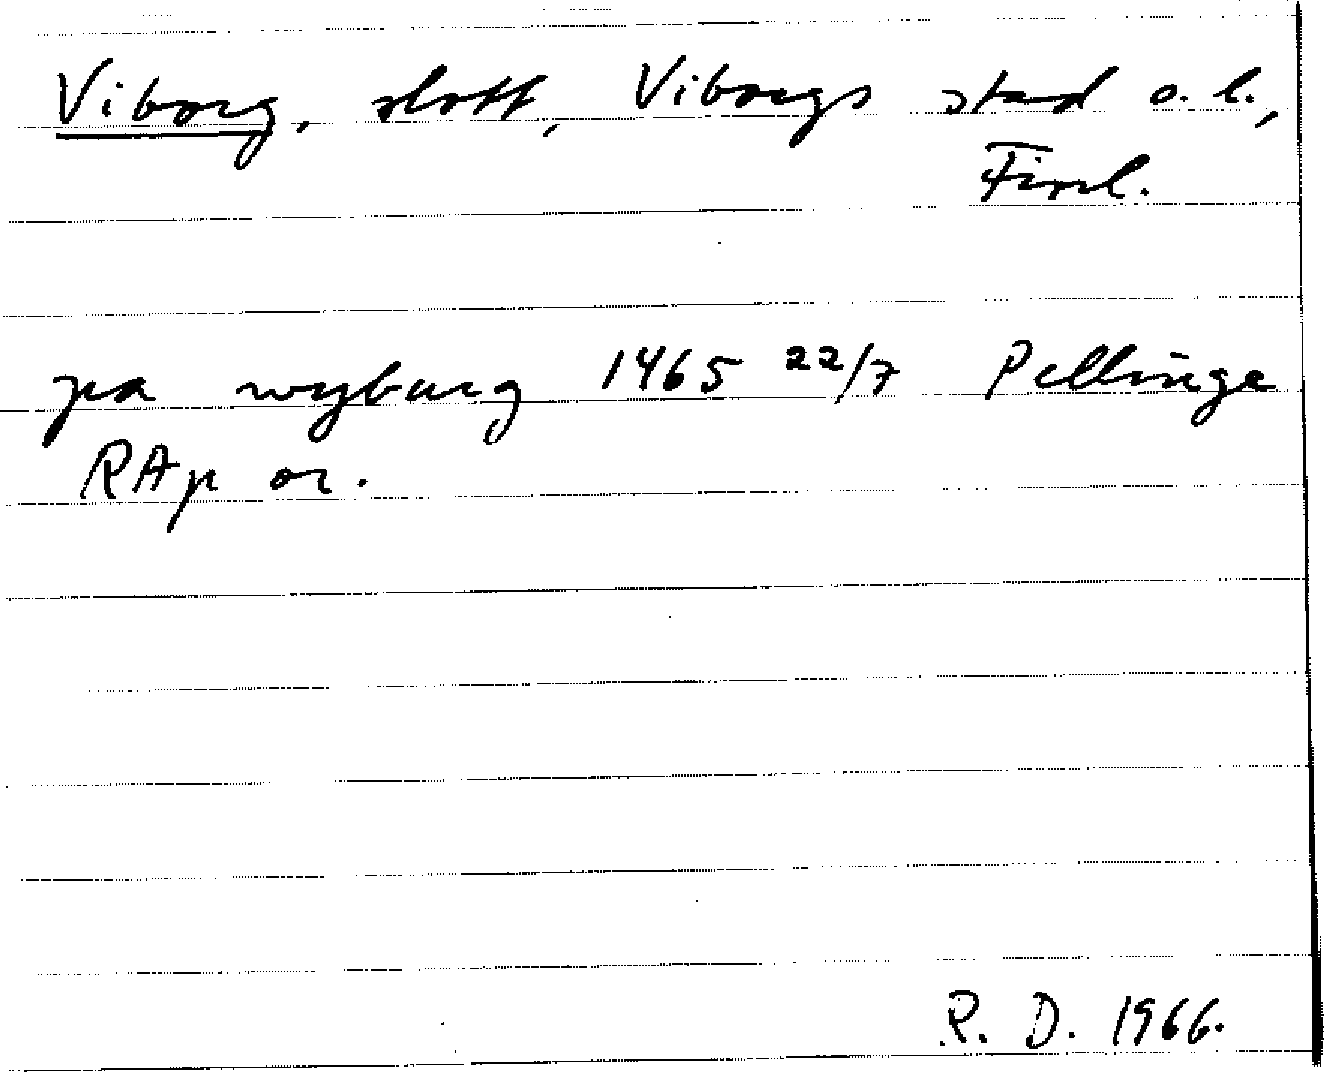 Viborg, slott, Viborgs stad o. l.,
Finl.
pa wyburg 1465 22/7 Pellinge
RAp or.
R. D. 1966.